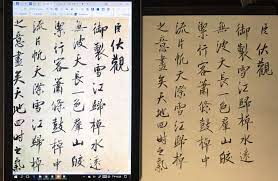 臣伏觀
御製雪江歸棹水遠
無波天長一色群山皎
絜行客蕭條鼓棹中
流片帆天際雪江歸棹
之意盡矣天地四時之氣
臣伏觀
御製雪江歸棹水遠
無波天長一色群山皎
絜行客蕭條鼓棹中
流片帆天際雪江歸棹
之意盡矣天地四時之氣